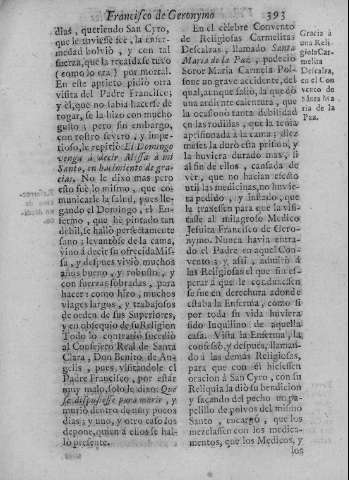 Francisco de Geronymo 393
dias, queriendo San Cyro,
que le tuviesse fee, la enfer-
medad bolviò, y con tal
fuerza, que la recaida se tuvo
(como lo era) por mortal.
En este aprieto pidiò otra
visita del Padre Francisco;
y èl, que no sabia hacerse de
rogar, se la hizo con mucho
gusto; pero sin embargo,
con rostro severo, y impe-
rioso, le repitiò: El Domingo
venga à decir Missa à mi
Santo, en hacimiento de gra-
cias. No le dixo mas pero
esto fue lo mismo, que co-
municarle la salud, pues lle-
gando el Domingo, el En-
fermo, que hè pintado tan
debil, se hallò perfectamente
sano; levantòse de la cama,
vino à decir su ofrecida Mis-
sa, y despues viviò muchos
años bueno, y robusto, y
con fuerzas sobradas, para
hacer, como hizo, muchos
viages largos, y trabajosos
de orden de sus Superiores,
y en obsequio de su Religion
Todo lo contrario sucediò
al Consejero Real de Santa
Clara, Don Benito de An-
gelis, pues visitandole el
Padre Francisco, por estàr
muy malo, solo le dixo: Que
se dispusiesse para morir, y
muriò dentro de muy pocos
dias; y uno, y otro caso los
depone, quien à ellos se ha-
llò presente.
En el cèlebre Convento
de Religiosas Carmelitas
Descalzas, llamado Santa
Maria de la Paz, padecìo
Soror Maria Carmela Pol-
sone un grave accidente, del
qual, aunque saliò, la quedò
una ardiente calentura, que
la ocasionò tanta debilidad
en las rodillas, que la tenia
aprisionada à la cama; diez
meses la durò esta prision, y
la huviera durado mas, si
al fin de ellos, cansada de
ver, que no hacian efecto
util las medicinas, no huvie-
ra pedido, y instado, que
la traxessen para que la visi-
tasse al milagroso Medico
Jesuita Francisco de Gero-
nymo. Nunca havia entra-
do el Padre en aquel Con-
vento; y assi, admirò à
las Religiosas el que sin es-
perar à que le conduxessen
se fue en derechura adonde
estaba la Enferma, como si
por toda su vida huviera
sido Inquilino de aquella
casa. Vista la Enferma, la
consolò, y despues, llaman-
do à las demàs Religiosas,
para que con èl hiciessen
oracion à San Cyro, con su
Reliquia la diò su bendicion
y sacando del pecho un pa-
pelillo de polvos del mismo
Santo, encargò, que los
mezclassen con los medica-
mentos, que los Medicos, y
los
Gracia à
una Reli-
giosa Car-
melita
Descalza,
en el Con
vento de
Santa Ma
ria de la
Paz.